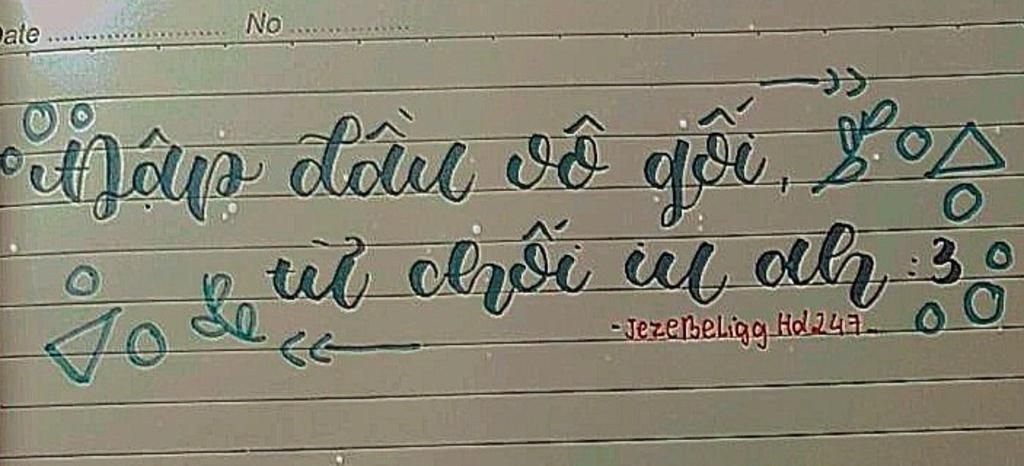 Date ........................ No ................
Đập đầu vô gối,
từ chối iu anh :3
- JezeBeLigg Hd247 -